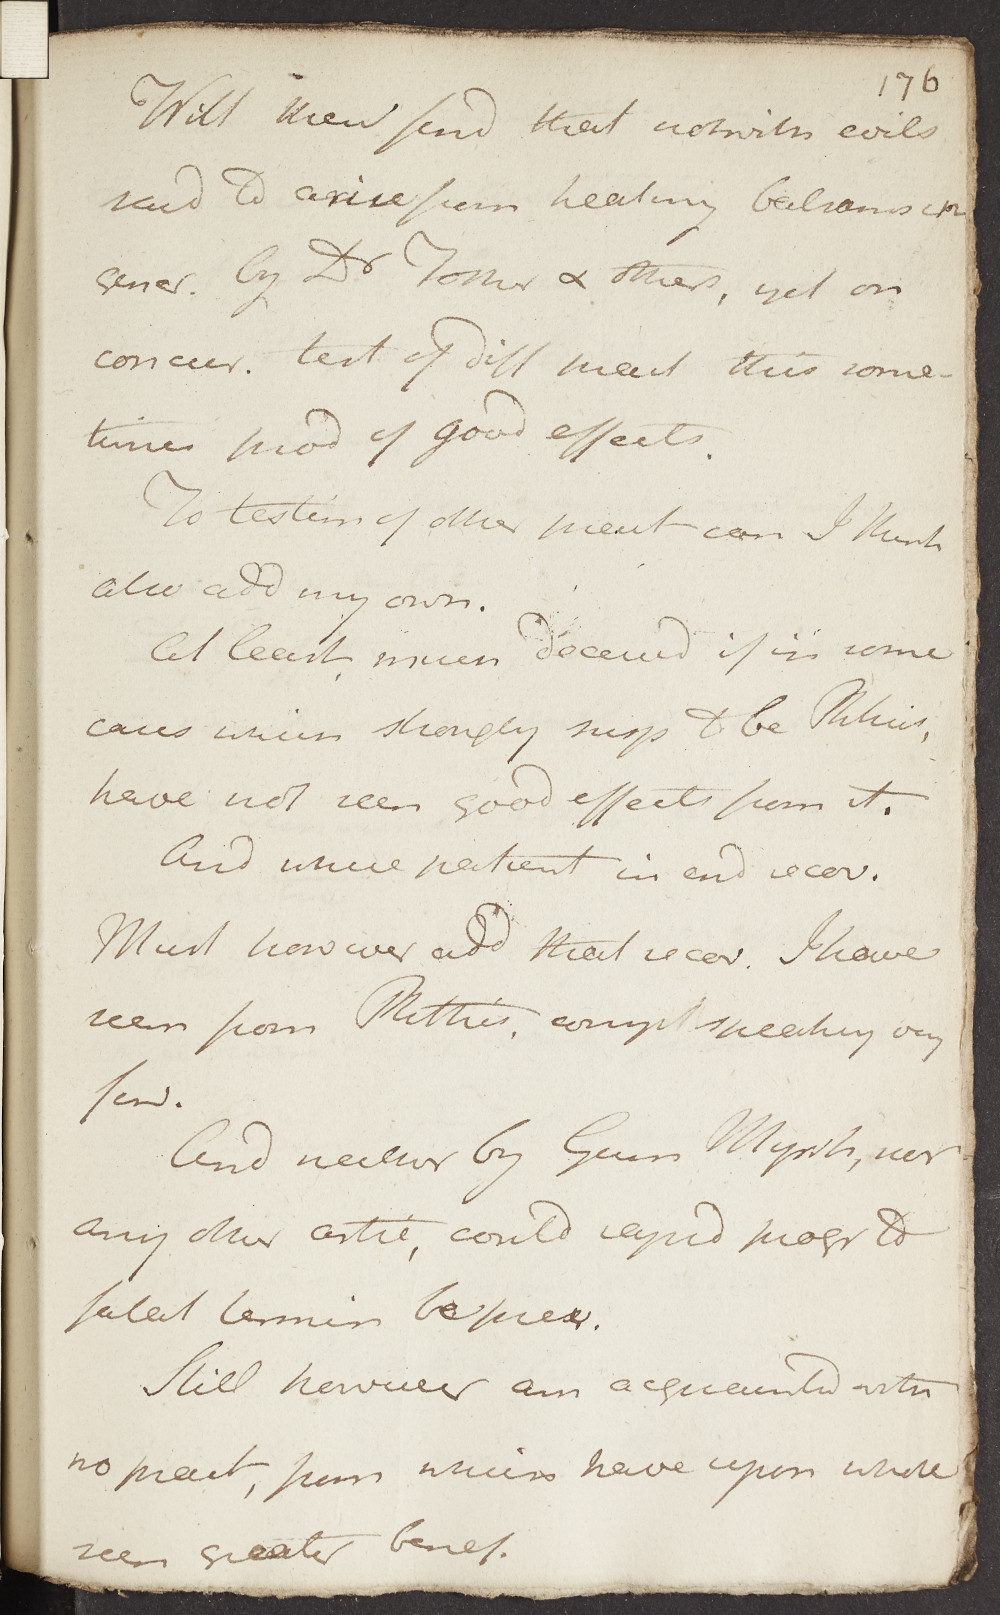 176
Will then find that notwith evils
said to arise from heating balsams in
gener. by Dr Fother & others, yet on
concur. test of diff pract this some-
times prod of good effects.
To testim of other pract can I think
also add my own.
At least, much deceived if in some
cases which strongly susp to be Phthis,
have not seen good effects from it.
And where patient in end recov.
Must however add that recov. I have
seen from Phthis, compl speaking very
few.
And neither by Gum Myrrh, nor
any other artic, could rapid progr to
fatal termin be prev.
Still however am acquainted with
no pract, from which have upon whole
seen greater benef.